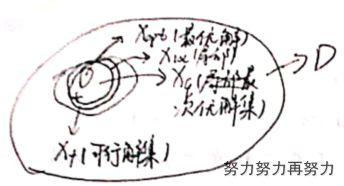 Xopt(最优解)
Xlx(局部)
Xε(局部最
次优解集)
D
Xf(可行解集)
努力努力再努力